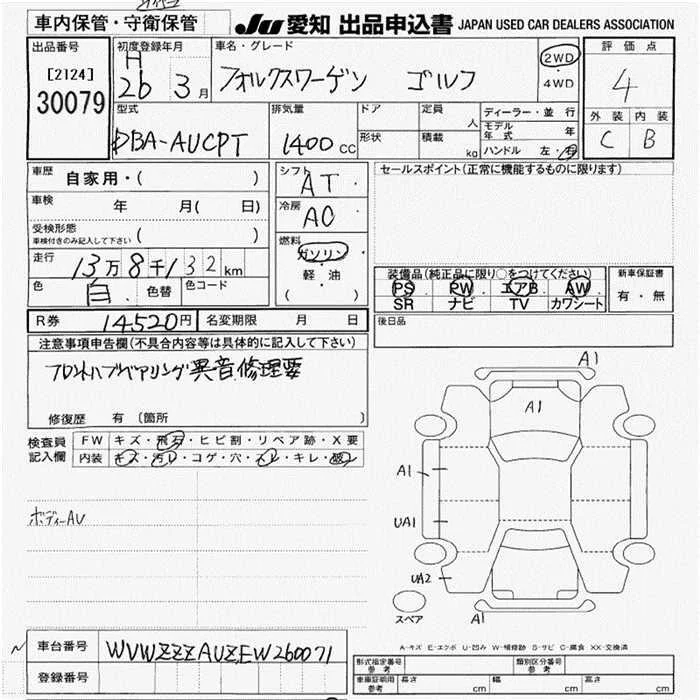 車内保管・守衛保管
JU 愛知 出品申込書 JAPAN USED CAR DEALERS ASSOCIATION
出品番号
[2124]
30079
初度登録年月
H
26 3月
車名・グレード
フォルクスワーゲン ゴルフ
2WD
・
4WD
評価点
4
外装 内装
C B
型式
DBA-AUCPT
排気量
1400cc
ドア
形状
定員 人
積載 kg
ディーラー・並行
モデル年式 年
ハンドル 左・右
車歴 自家用・( )
車検 年 月( 日)
受検形態
車検付きのみ記入して下さい ( )
走行 13万8千132km
色 白 色替 色コード
シフト
AT
冷房
AC
燃料
ガソリン
・
軽・油
( )
セールスポイント(正常に機能するものに限ります)
装備品(純正品に限り○をつけてください)
PS・PW・エアB・AW
SR ナビ TV カワシート
新車保証書
有・無
後日品
R券 14520円 名変期限 月 日
注意事項申告欄(不具合内容等は具体的に記入して下さい)
フロントハブベアリング異音修理要
修復歴 有〔箇所 〕
検査員
記入欄
FW キズ・飛石・ヒビ割・リペア跡・X要
内装 キズ・汚レ・コゲ・穴・スレ・キレ・破レ
ボディーAU
A1
A1
A1
UA1
UA2
A1
スペア
A-キズ E-エクボ U-凹み W-補修跡 S-サビ C-腐食 XX-交換済
車台番号 WVWZZZAUZEW260071
登録番号
形式指定番号
参考
類別区分番号
参考
車庫証明用
参考
長さ cm 幅 cm 高さ cm